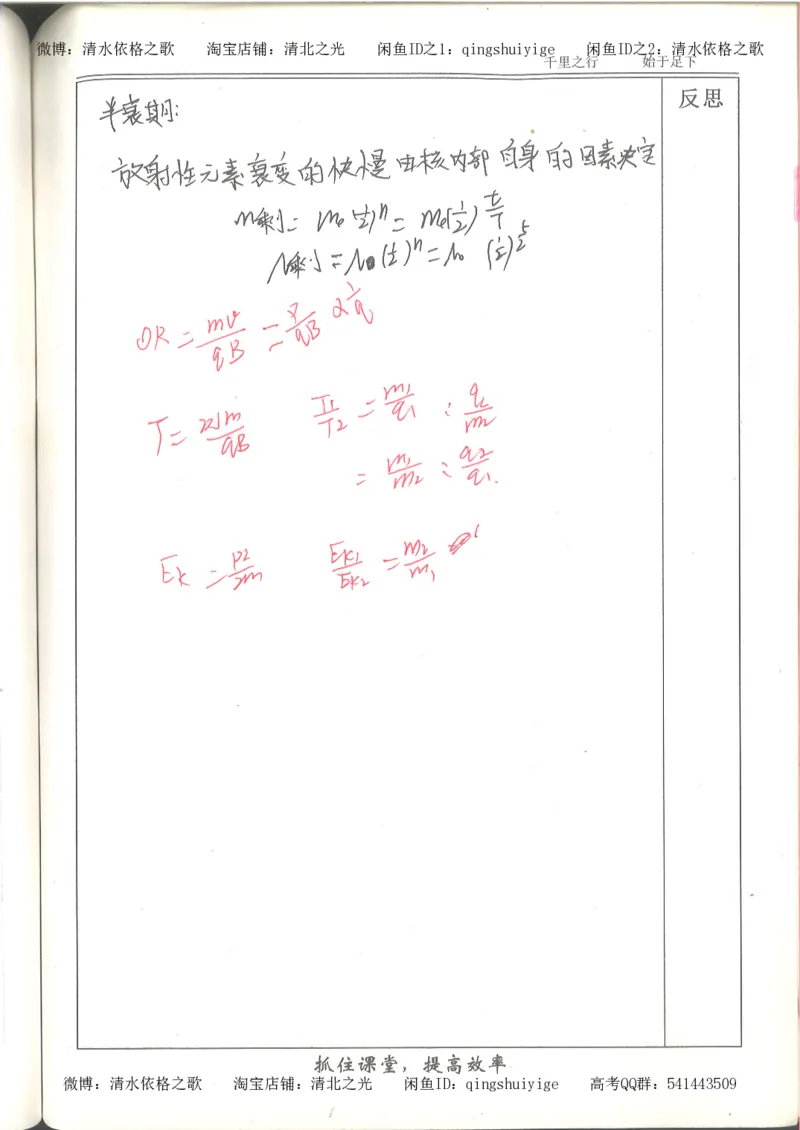 微博：清水依格之歌 淘宝店铺：清北之光 闲鱼ID之1：qingshuiyige 闲鱼ID之2：清水依格之歌
千里之行 始于足下
反思
半衰期：
放射性元素衰变的快慢由核内部自身的因素决定
m剩 = m₀(1/2)ⁿ = m₀(1/2)^(t/T)
N剩 = N₀(1/2)ⁿ = N₀(1/2)
①R = mv/qB = P/qB ∝ 1/q
T = 2πm/qB T₁/T₂ = m₁/q₁ : q₂/m₂
= m₁/m₂ : q₂/q₁.
Ek = P²/2m Ek₁/Ek₂ = m₂/m₁
抓住课堂，提高效率
微博：清水依格之歌 淘宝店铺：清北之光 闲鱼ID：qingshuiyige 高考QQ群：541443509